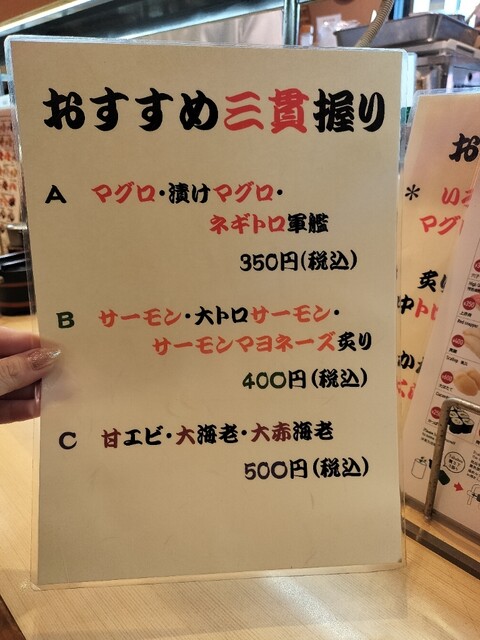 おすすめ三貫握り
A マグロ・漬けマグロ・
ネギトロ軍艦
350円(税込)
B サーモン・大トロサーモン・
サーモンマヨネーズ炙り
400円(税込)
C 甘エビ・大海老・大赤海老
500円(税込)
お
*
マグ
炙り